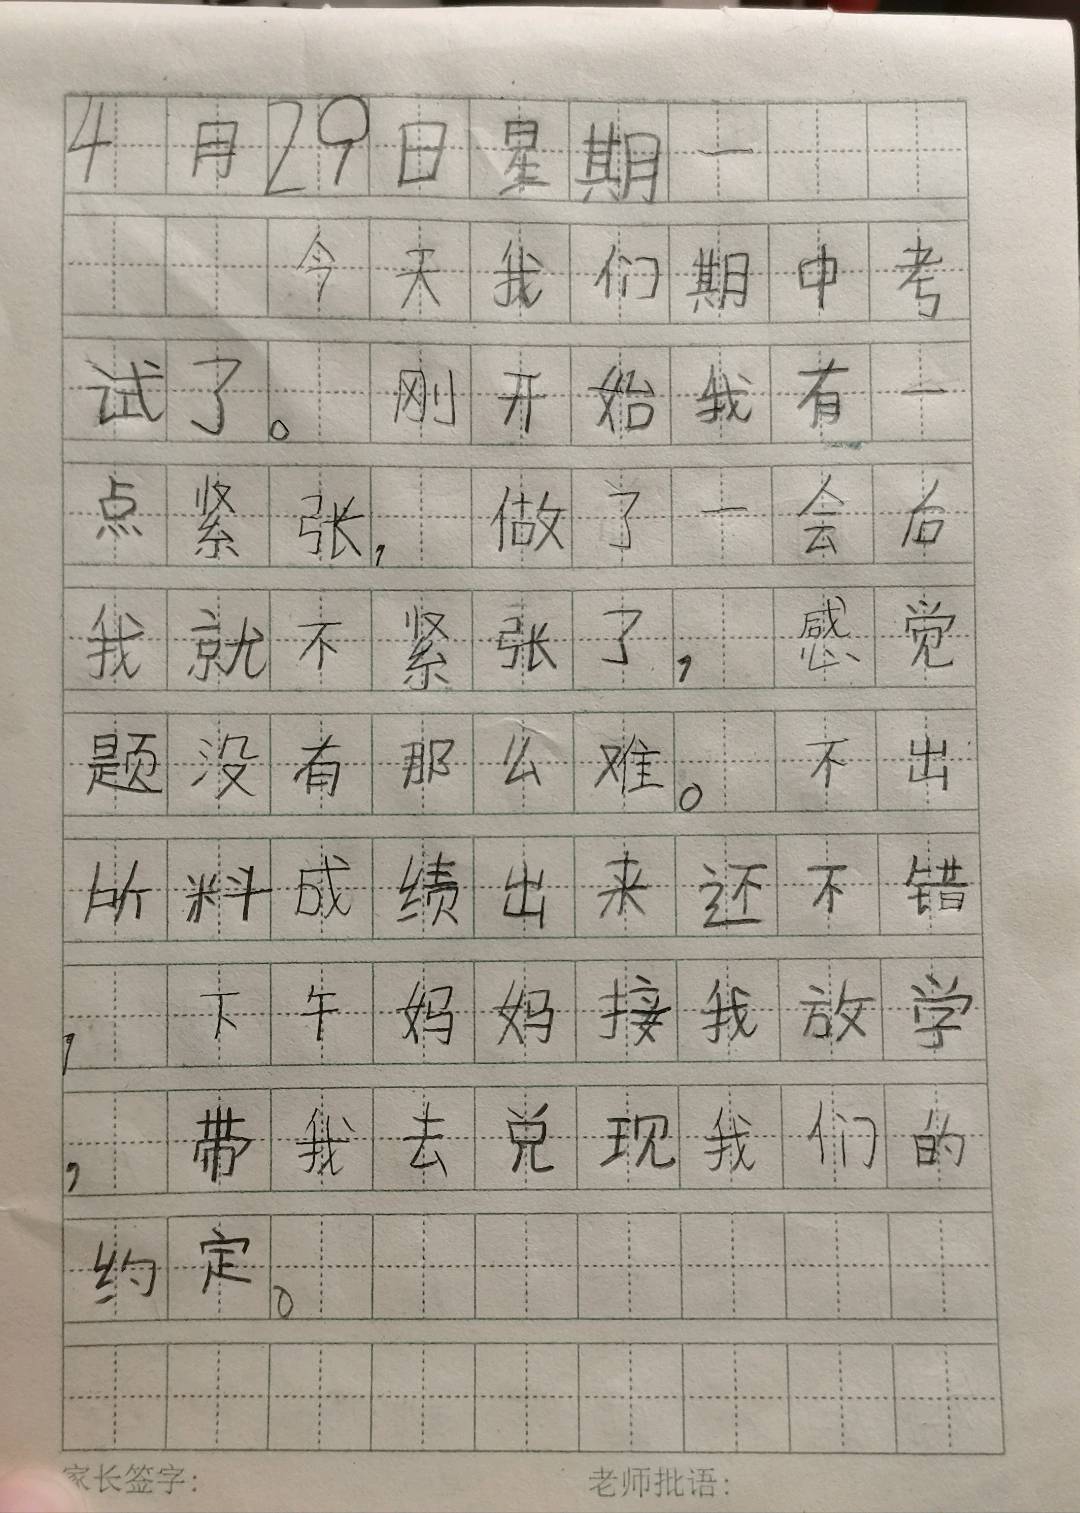 4月29日星期一
今天我们期中考
试了。刚开始我有一
点紧张,做了一会后
我就不紧张了,感觉
题没有那么难。不出
所料成绩出来还不错
,下午妈妈接我放学
,带我去兑现我们的
约定。
家长签字: 老师批语: